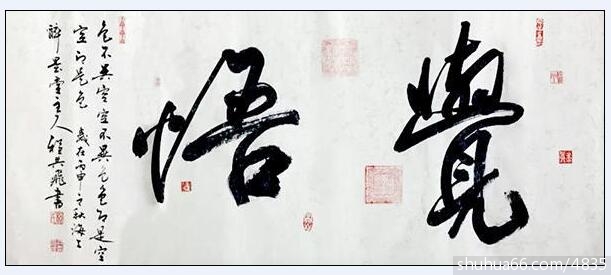 覺悟
色不異空空不異色色即是空
空即是色 歲在丙申之秋海上
醉墨堂主人程共飛書
shuhua66.com/4835